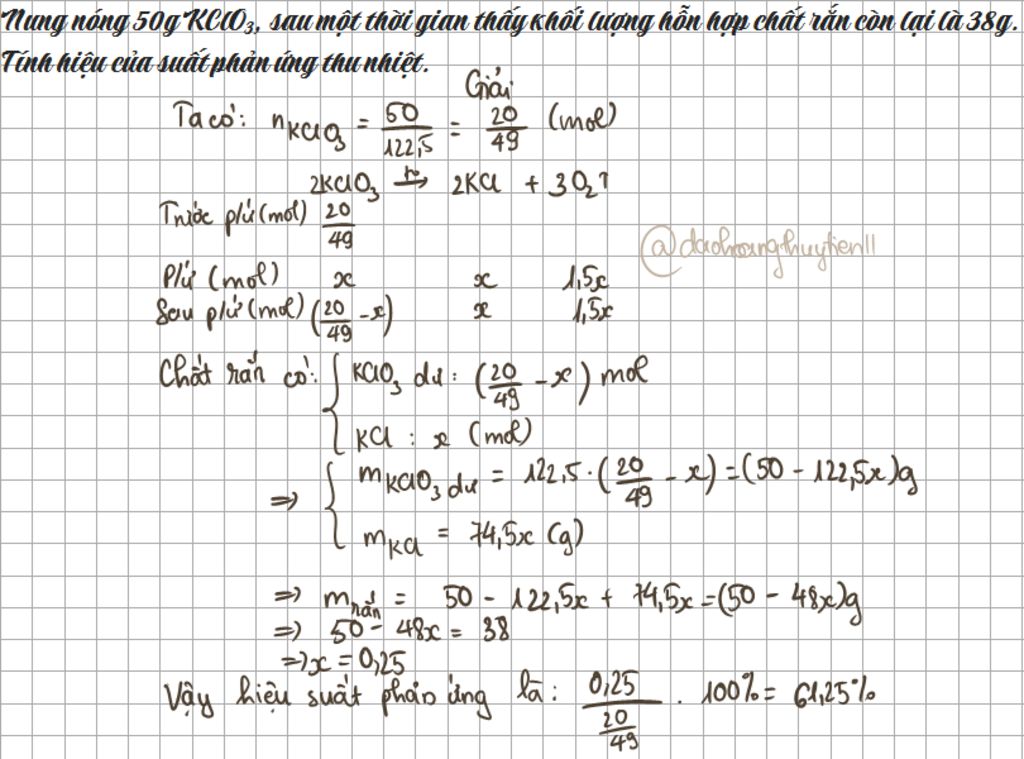 Nung nóng 50g KClO₃, sau một thời gian thấy khối lượng hỗn hợp chất rắn còn lại là 38g.
Tính hiệu của suất phản ứng thu nhiệt.
Giải
Ta có: nKClO₃ = 50/122,5 = 20/49 (mol)
2KClO₃ t°→ 2KCl + 3O₂↑
Trước p/ứ (mol) 20/49
P/ứ (mol) x x 1,5x
Sau p/ứ (mol) (20/49 - x) x 1,5x
@daohoangthuytien11
Chất rắn có: { KClO₃ dư : (20/49 - x) mol
KCl : x (mol)
⇒ { mKClO₃ dư = 122,5 · (20/49 - x) = (50 - 122,5x)g
mKCl = 74,5x (g)
⇒ m rắn = 50 - 122,5x + 74,5x = (50 - 48x)g
⇒ 50 - 48x = 38
⇒ x = 0,25
Vậy hiệu suất phản ứng là: 0,25/(20/49) . 100% = 61,25%